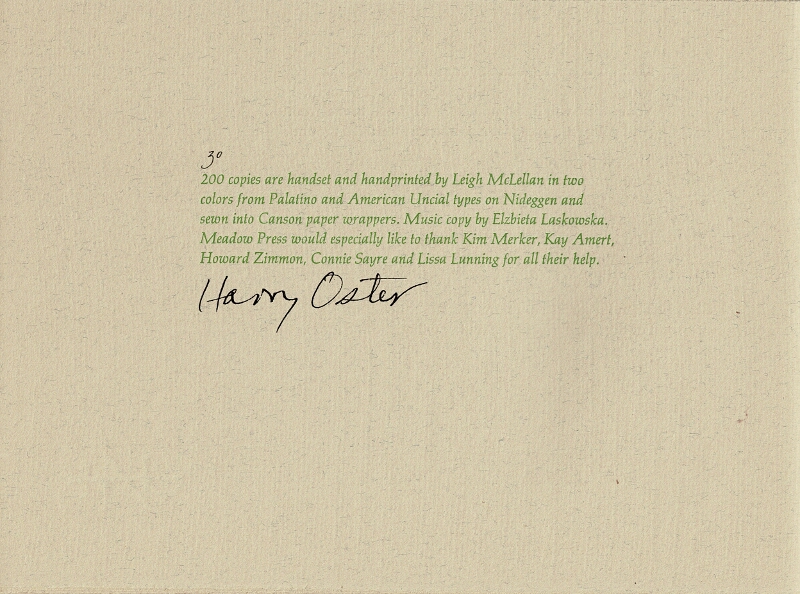 30
200 copies are handset and handprinted by Leigh McLellan in two
colors from Palatino and American Uncial types on Nideggen and
sewn into Canson paper wrappers. Music copy by Elzbieta Laskowska.
Meadow Press would especially like to thank Kim Merker, Kay Amert,
Howard Zimmon, Connie Sayre and Lissa Lunning for all their help.
Harry Oster